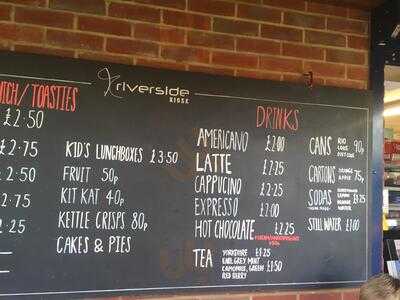 riverside
KIOSK
NICH / TOASTIES
£2·50
£2·75
2·50
2·75
2·25
KID'S LUNCHBOXES £3·50
FRUIT 50p
KIT KAT 40p
KETTLE CRISPS 80p
CAKES & PIES
DRINKS
AMERICANO £2·00
LATTE £2·25
CAPPUCINO £2·25
EXPRESSO £2·00
HOT CHOCOLATE £2·25
TEA YORKSHIRE £1·25
EARL GREY MINT
CAMOMILE, GREEN £1·50
RED BERRY
CANS RIO 90p
COKE
DIET COKE
CARTONS ORANGE 75p
APPLE
SODAS
STILL WATER £1·00